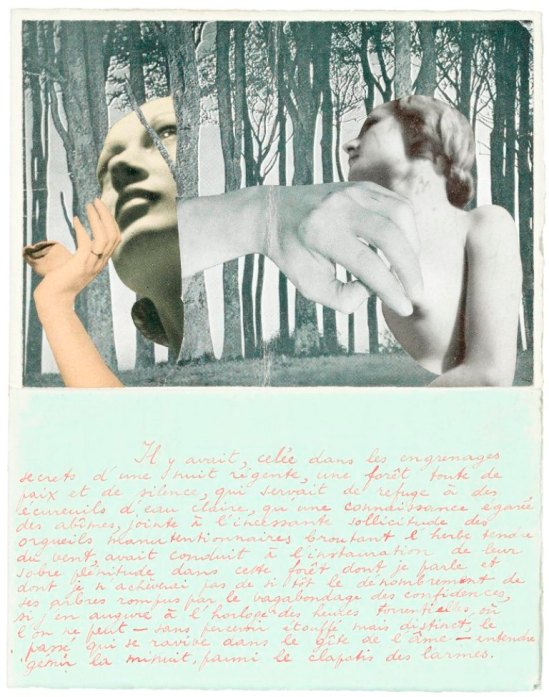 Il y avait, celée dans les engrenages
secrets d'une nuit régente, une forêt toute de
paix et de silence, qui servait de refuge à des
écureuils d'eau claire, qu'une connaissance égarée
des abîmes, jointe à l'incessante sollicitude des
orgueils manutentionnaires broutant l'herbe tendre
du vent, avait conduit à l'instauration de leur
sobre plénitude dans cette forêt dont je parle et
dont je n'achèverai pas de si tôt le dénombrement de
ses arbres rompus par le vagabondage des confidences,
si j'en augure à l'horloge des heures torrentielles, où
l'on ne peut — sans percevoir étouffé mais distinct, le
passé qui se ravive dans le gîte de l'âme — entendre
gémir la minuit, parmi le clapotis des larmes.